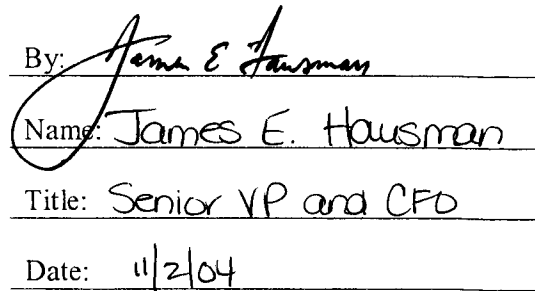 By: James E Hausman
Name: James E. Hausman
Title: Senior VP and CFO
Date: 11/2/04